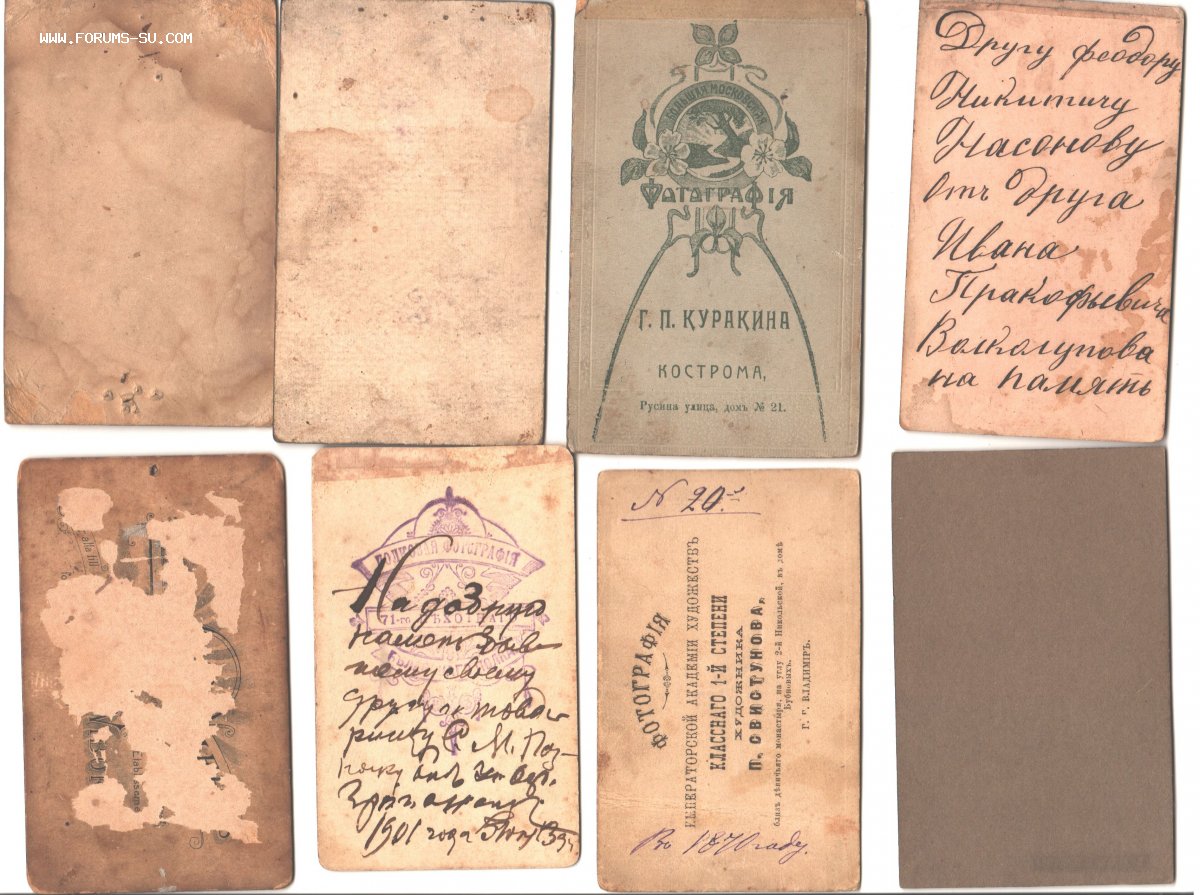 WWW.FORUMS-SU.COM
БОЛЬШАЯ МОСКОВСКАЯ
ФОТОГРАФІЯ
Г. П. КУРАКИНА
КОСТРОМА,
Русина улица, домъ № 21.
Другу феодору
Никитичу
Насонову
Отъ друга
Ивана
Пракофьевича
Волкогупова
на память
alla fili
Etablissame
ПОЛКОВАЯ ФОТОГРАФІЯ
71-го ПѢХОТНАГО
На добрую
память
своему
другу
М.
1901 года
N 20.
ФОТОГРАФІЯ
ИМПЕРАТОРСКОЙ АКАДЕМІИ ХУДОЖЕСТВЪ
КЛАССНАГО 1-Й СТЕПЕНИ
ХУДОЖНИКА
П. СВИСТУНОВА,
близъ дѣвичьяго монастыря, на углу 2-й Никольской, въ домѣ
Бубновыхъ.
Г. ВЛАДИМІРЪ.
Въ 1870 году.